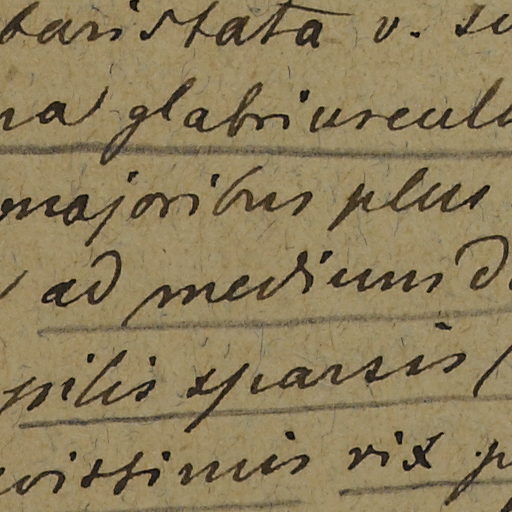 baristata v.
glabriuscul
majoribus plus
ad medium d
pilis sparsis (
vissimis vix p